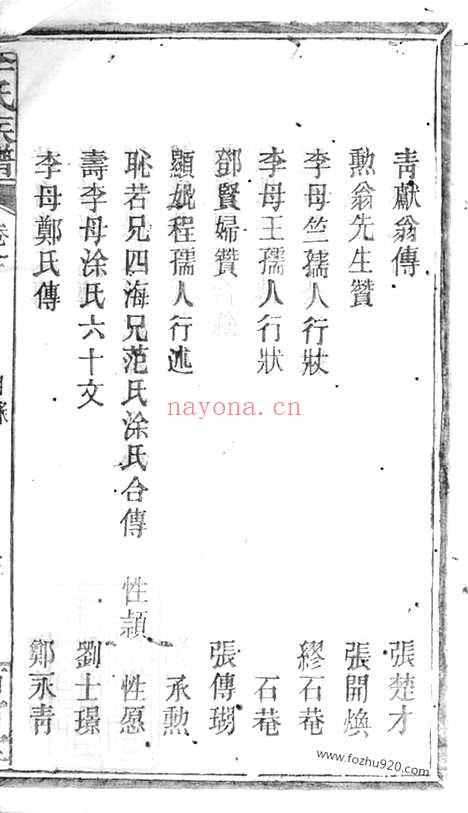 靑獻翁傳 張楚才
勲翁先生贊 張開煥
李母竺孺人行狀 繆石菴
李母王孺人行狀 石菴
鄧賢婦贊 張傳瑚
顯妣程孺人行述 承勲
恥若兄四海兄范氏涂氏合傳 性頴 性愿
壽李母涂氏六十文 劉士璟
李母鄭氏傳 鄭永靑
氏族譜
卷
目錄
nayona.cn
www.fozhu920.com